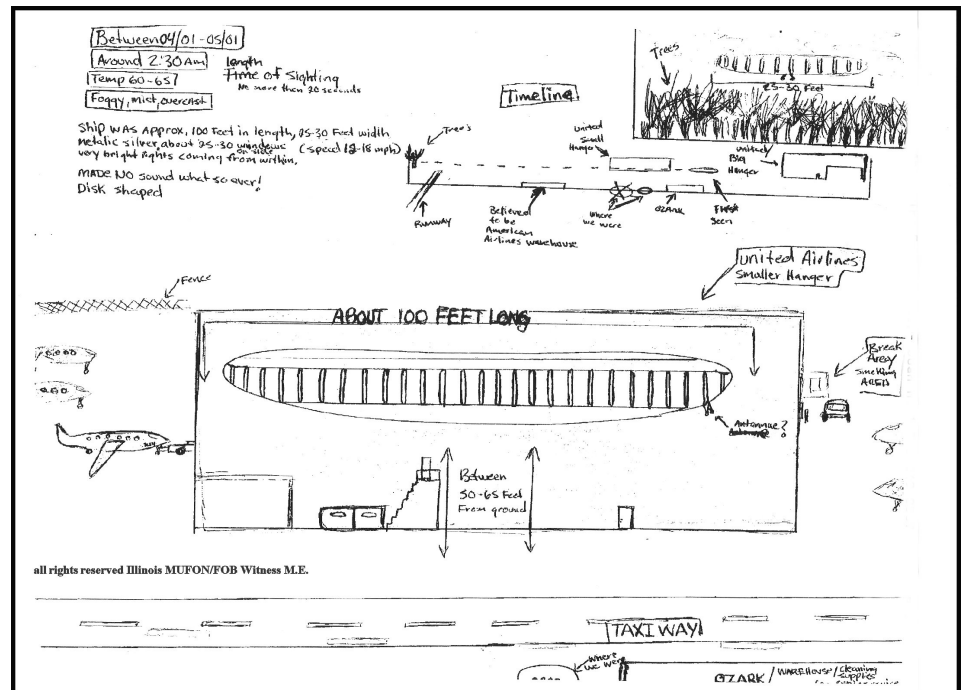 Between 04/01-05/01
Around 2:30 Am
Temp 60-65
Foggy, mist, overcast
length
Time of Sighting
No more than 20 seconds
Ship WAS Approx, 100 Feet in length, 25-30 Feet width
Metalic silver, about 25-30 windows (speed 12-18 mph)
on side
very bright lights coming from within,
MADE NO sound what so ever!
Disk shaped
Timeline
Trees
25-30 Feet
Tree's
United
Small
Hanger
united
Big
Hanger
Runway
Believed
to be
American
Airlines warehouse
Where
we were
OZARK
First
Seen
united Airlines
Smaller Hanger
Fence
ABOUT 100 FEET LONG
Break
Area
Smoking
AREA
Antannae?
Between
50-65 Feet
From ground
all rights reserved Illinois MUFON/FOB Witness M.E.
TAXI WAY
Where
we were
OZARK / WAREHOUSE / Cleaning
Supplies